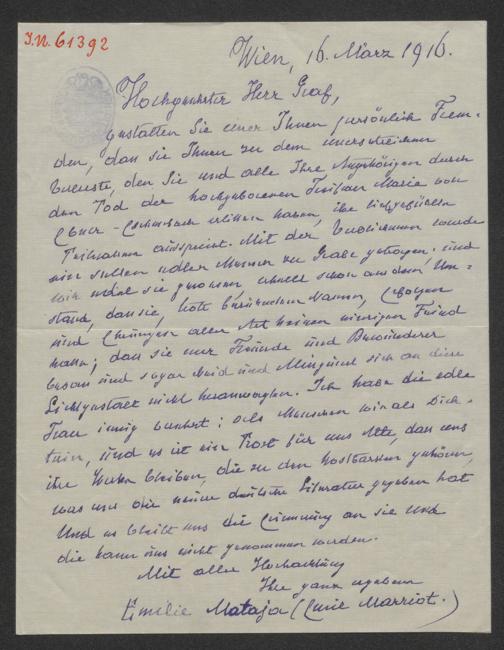 I.N. 61392
Wien, 16. März 1916.
Hochgeehrter Herr Graf,
gestatten Sie einer Ihnen persönlich Frem-
den, dass sie Ihnen zu dem unersetzlichen
Verluste, den Sie und alle Ihre Angehörigen durch
den Tod der hochgeborenen Freifrau Marie von
Ebner-Eschenbach erlitten haben, ihre tiefgefühlte
Teilnahme ausspricht. Mit der Verblichenen wurde
ein selten edler Mensch zu Grabe getragen, und
wie edel sie gewesen erhellt schon aus dem Um-
stand, dass sie, trotz Namen, Erfolgen
und Ehrungen aller Art keinen einzigen Feind
hatte; dass sie nur Freunde und Bewunderer
besass und sogar Neid und Missgunst sich an diese
Lichtgestalt nicht heranwagten. Ich habe die edle
Frau innig verehrt: als Menschen wie als Dich-
terin, und es ist ein Trost für uns Alle, dass uns
ihre Werke bleiben, die zu den Kostbarsten gehören,
was uns die neuere deutsche Literatur gegeben hat.
Und es bleibt uns die Erinnerung an sie und
die kann uns nicht genommen werden.
Mit aller Hochachtung
Ihre ganz ergebene
Emilie Mataja (Emil Marriot.)